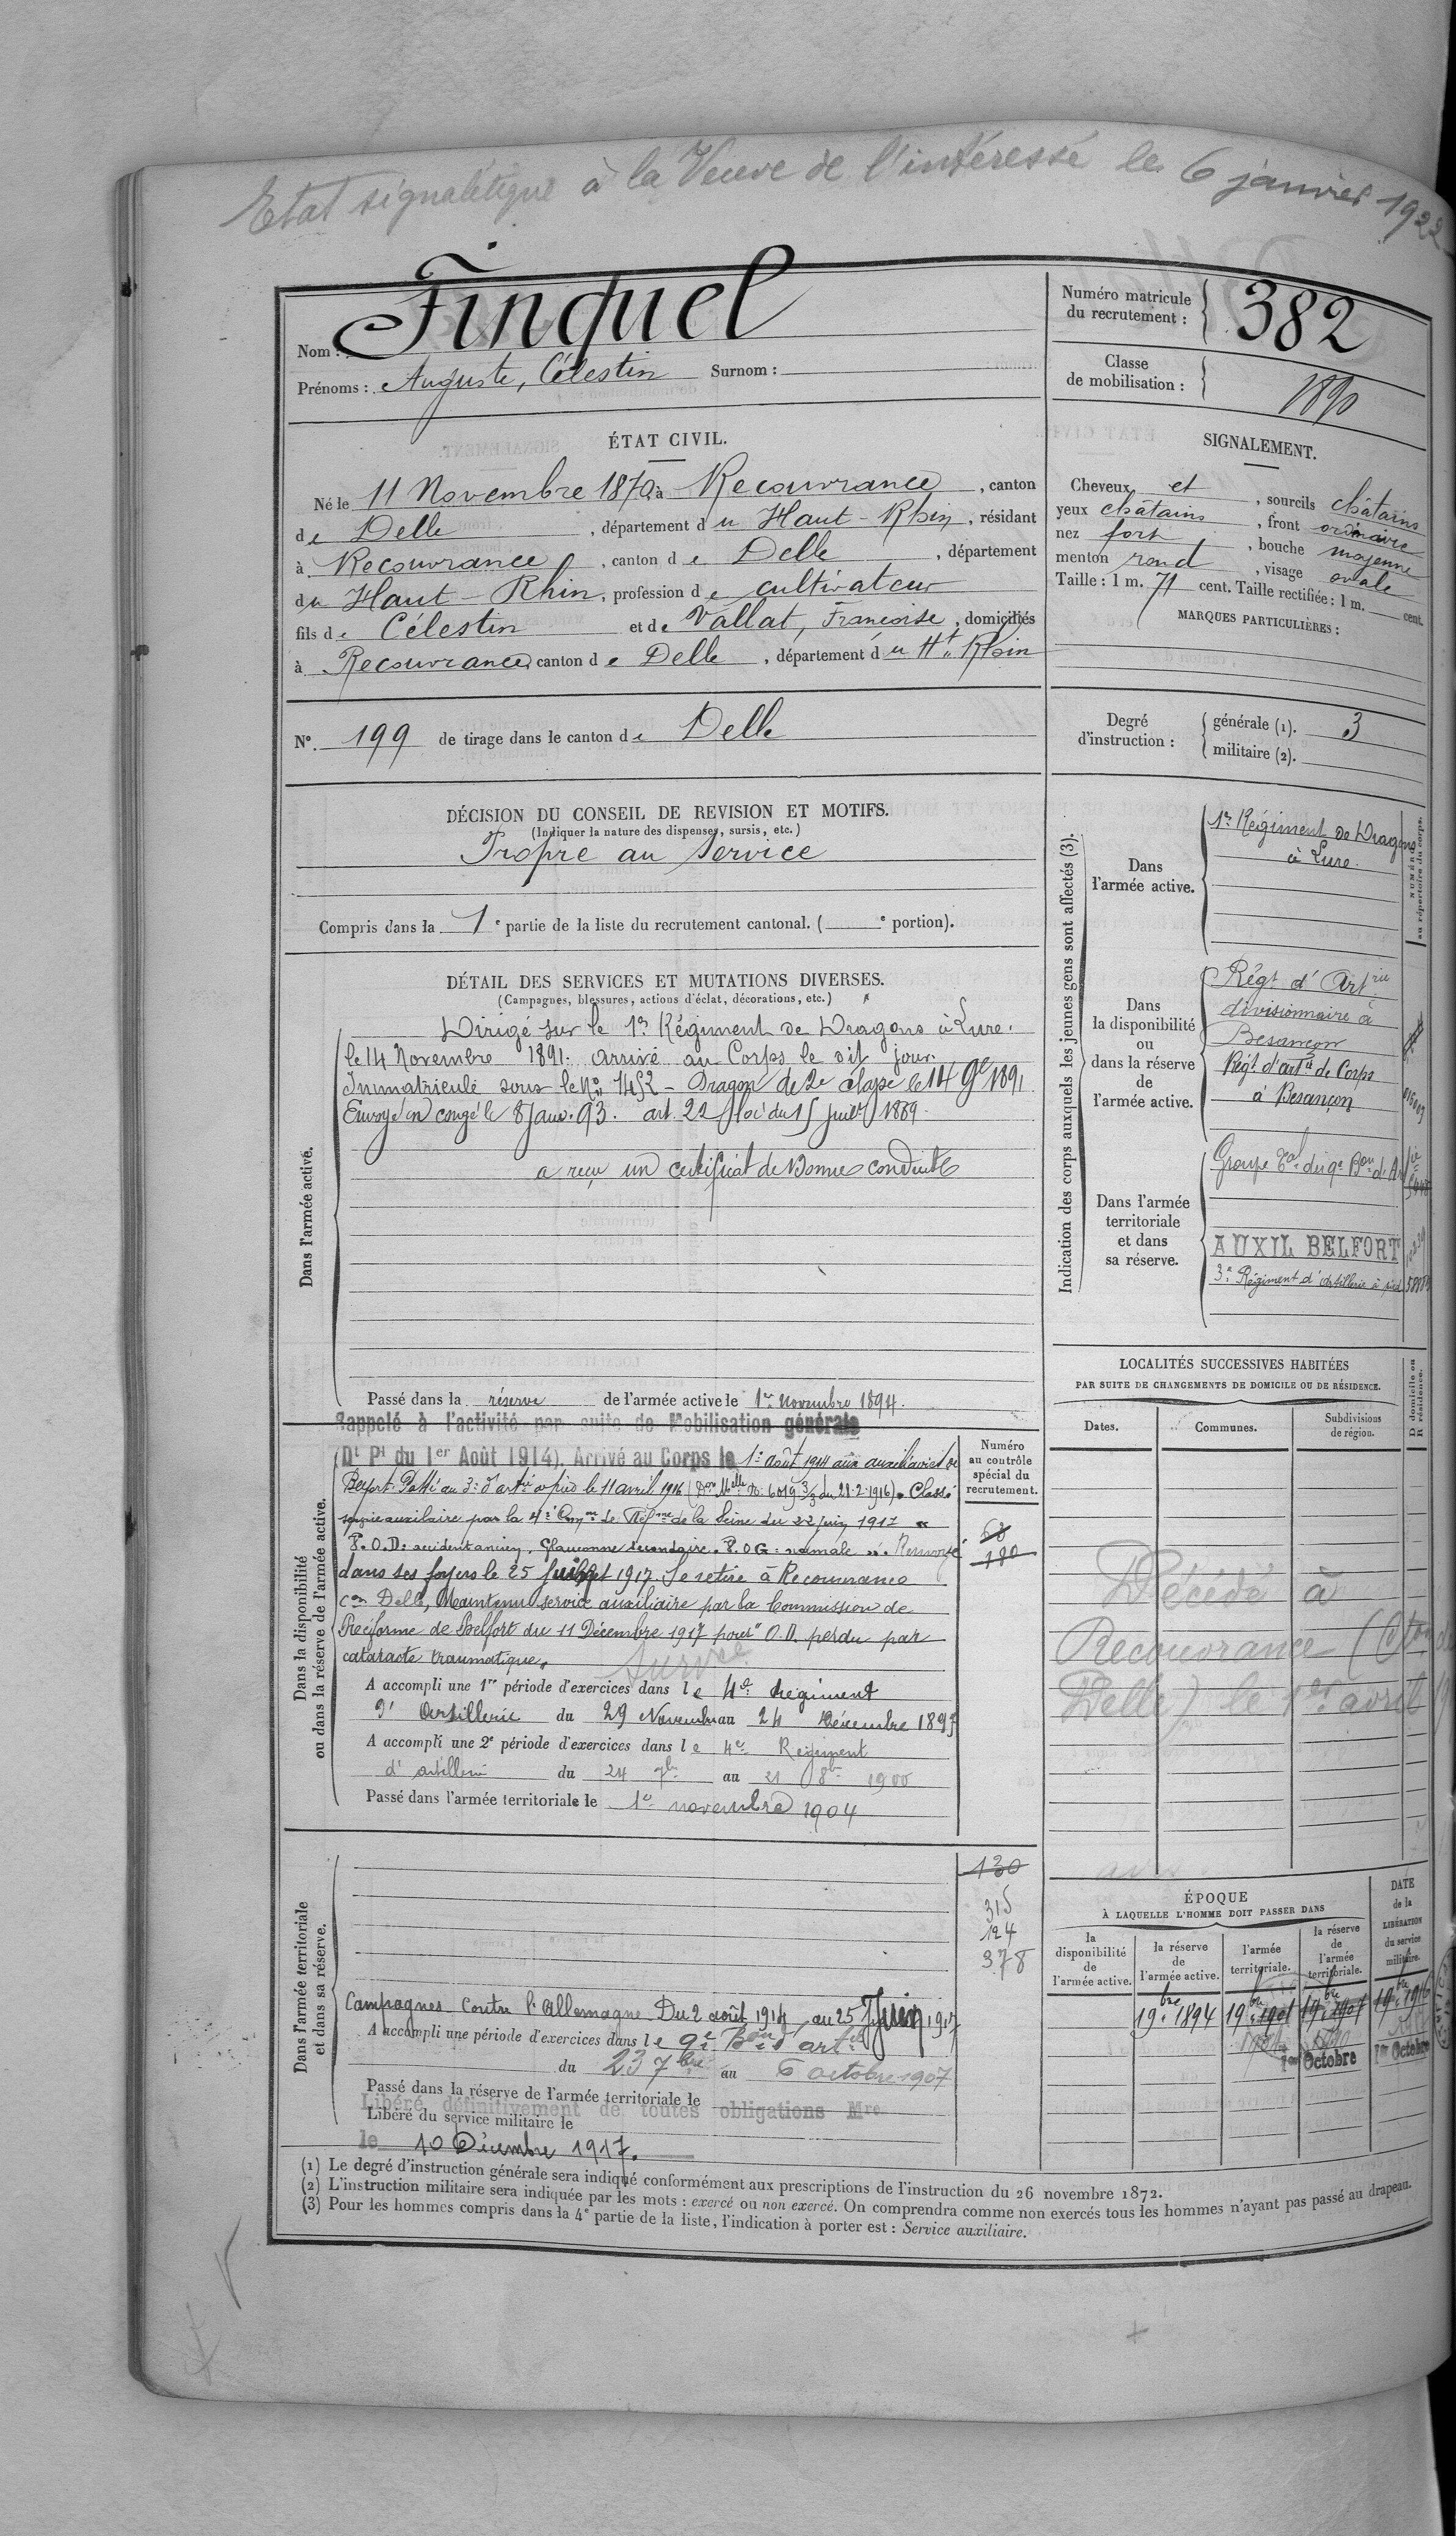 Etat signalétique à la Veuve de l'intéressé le 6 janvier 1922
Nom : Finquel
Prénoms : Auguste, Célestin Surnom :
Numéro matricule du recrutement : 382
Classe de mobilisation : 1890
ÉTAT CIVIL.
Né le 11 Novembre 1870 à Recouvrance, canton
de Delle, département du Haut-Rhin, résidant
à Recouvrance, canton de Delle, département
du Haut-Rhin, profession de cultivateur
fils de Célestin et de Vallat, Françoise, domiciliés
à Recouvrance, canton de Delle, département du Ht Rhin
SIGNALEMENT.
Cheveux et , sourcils châtains
yeux châtains , front ordinaire
nez fort , bouche moyenne
menton rond , visage ovale
Taille : 1 m. 71 cent. Taille rectifiée : 1 m. cent.
MARQUES PARTICULIÈRES :
N° 199 de tirage dans le canton de Delle
Degré d'instruction : générale (1). 3
militaire (2).
DÉCISION DU CONSEIL DE REVISION ET MOTIFS.
(Indiquer la nature des dispenses, sursis, etc.)
Propre au Service
Compris dans la 1e partie de la liste du recrutement cantonal. ( e portion).
DÉTAIL DES SERVICES ET MUTATIONS DIVERSES.
(Campagnes, blessures, actions d'éclat, décorations, etc.)
Dans l'armée active.
Dirigé sur le 1er Régiment de Dragons à Lure.
le 14 Novembre 1891. arrivé au Corps le dit jour.
Immatriculé sous le No 1452 - Dragon de 2e classe le 14 9bre 1891
Envoyé en congé le 8 Janv. 93. art. 22 loi du 15 juillet 1889.
a reçu un certificat de Bonne conduite
Passé dans la réserve de l'armée active le 1er novembre 1894.
Indication des corps auxquels les jeunes gens sont affectés (3).
NUMÉRO au répertoire du corps.
Dans l'armée active.
1er Régiment de Dragons
à Lure.
Dans la disponibilité ou dans la réserve de l'armée active.
Régt d'Artrie
divisionnaire à
Besançon
Régt d'artie de Corps
à Besançon
Dans l'armée territoriale et dans sa réserve.
Groupe tal du 9e Bon d'Art
AUXIL BELFORT
3e Régiment d'Artillerie à pied
LOCALITÉS SUCCESSIVES HABITÉES
PAR SUITE DE CHANGEMENTS DE DOMICILE OU DE RÉSIDENCE.
Dates. Communes. Subdivisions de région. D domicile ou R résidence.
Décédé à
Recouvrance (Cton de
Delle) le 1er avril
avis
Dans la disponibilité ou dans la réserve de l'armée active.
Numéro au contrôle spécial du recrutement.
Rappelé à l'activité par suite de Mobilisation générale
(Dt Pl du 1er Août 1914). Arrivé au Corps le 1er août 1914 aux auxiliaires de
Belfort. Passé au 3e d'artie à pied le 11 avril 1916 (Don Mlle No 6019 3/3 du 21-2-1916). Classé
service auxiliaire par la 4e Comon de Réfme de la Seine du 22 juin 1917
P.O.D: accident ancien, Glaucome secondaire. P.O.G: normale. Renvoyé
dans ses foyers le 25 1917 Se retire à Recouvrance
Con Delle, Maintenu service auxiliaire par la Commission de
Réforme de Belfort du 11 Décembre 1917 pour "O.D. perdu par
cataracte traumatique"
180
A accompli une 1re période d'exercices dans le 4e Régiment
d'Artillerie du 29 Novembre au 24 Décembre 1897
A accompli une 2e période d'exercices dans le 4e Régiment
d'artillerie du 24 7bre au 21 8bre 1900
Passé dans l'armée territoriale le 1er novembre 1904
Dans l'armée territoriale et dans sa réserve.
130
315
124
378
Campagnes contre l'Allemagne Du 2 août 1914 au 25 Juin 1917
A accompli une période d'exercices dans le 9e Bon d'artie
du 23 7bre au 6 octobre 1907
Passé dans la réserve de l'armée territoriale le
Libéré définitivement de toutes obligations Mres
Libéré du service militaire le
le 10 Décembre 1917.
ÉPOQUE
À LAQUELLE L'HOMME DOIT PASSER DANS
la disponibilité de l'armée active.
la réserve de l'armée active.
l'armée territoriale.
la réserve de l'armée territoriale.
DATE de la LIBÉRATION du service militaire.
1 9bre 1894 1 9bre 1901 1 9bre 1907 1 9bre 1916
1er Octobre 1er Octobre
(1) Le degré d'instruction générale sera indiqué conformément aux prescriptions de l'instruction du 26 novembre 1872.
(2) L'instruction militaire sera indiquée par les mots : exercé ou non exercé. On comprendra comme non exercés tous les hommes n'ayant pas passé au drapeau.
(3) Pour les hommes compris dans la 4e partie de la liste, l'indication à porter est : Service auxiliaire.